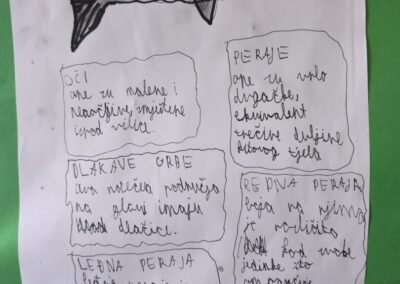 OČI
one su malene i
neodljive, smještene
ispod vilice.
PERAJE
one su vrlo
dugačke,
ekvivalent
trećine duljine
kitovog tijela
DLAKAVE GRBE
ova noseća područja
na glavi imaju
dlačice.
REPNA PERAJA
boja na njima
je različita
kod svake
jedinke što
LEĐNA PERAJA